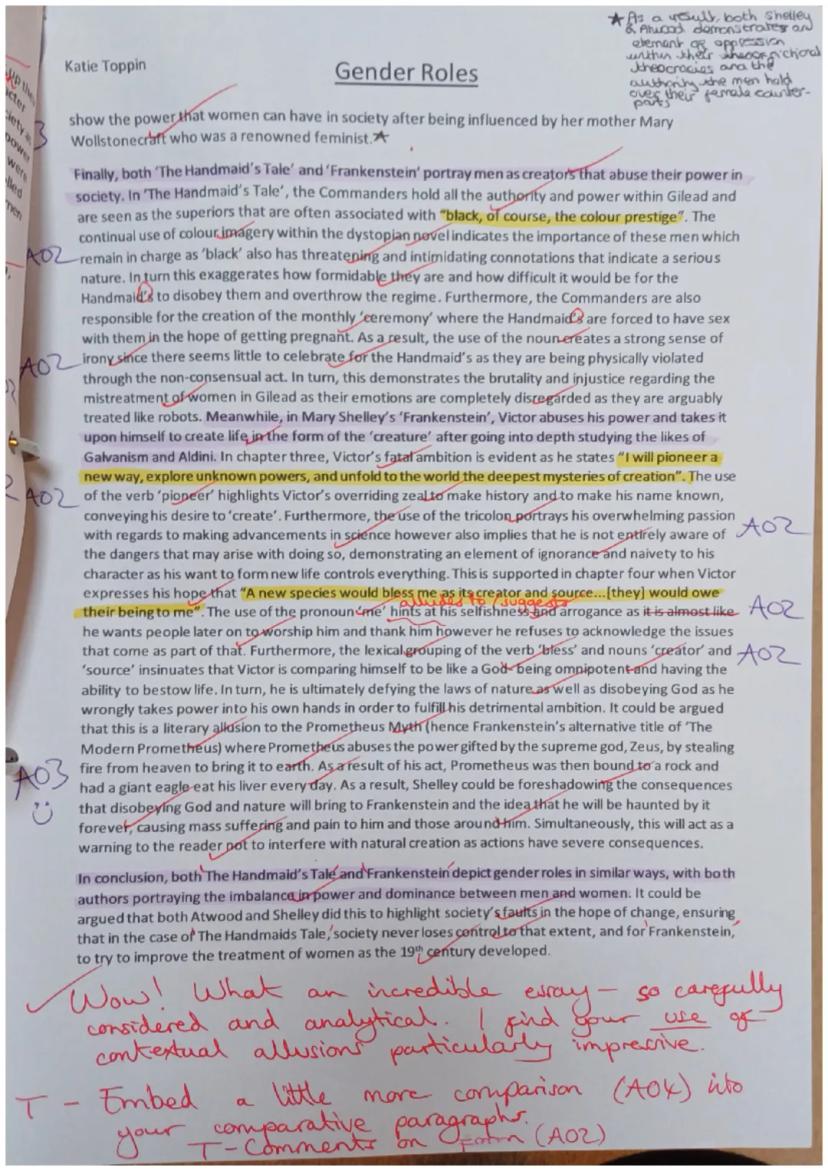 ★As a result, both Shelley
& Atwood demonstrates an
element of oppression
within their
theocracies and the
authority the men hold
over their female counter-
parts
Katie Toppin
Gender Roles
show the power that women can have in society after being influenced by her mother Mary
Wollstonecraft who was a renowned feminist.★
Finally, both 'The Handmaid's Tale' and 'Frankenstein' portray men as creators that abuse their power in
society. In 'The Handmaid's Tale', the Commanders hold all the authority and power within Gilead and
are seen as the superiors that are often associated with "black, of course, the colour prestige". The
continual use of colour imagery within the dystopian novel indicates the importance of these men which
AO2 remain in charge as 'black' also has threatening and intimidating connotations that indicate a serious
nature. In turn this exaggerates how formidable they are and how difficult it would be for the
Handmaid's to disobey them and overthrow the regime. Furthermore, the Commanders are also
responsible for the creation of the monthly 'ceremony' where the Handmaid's are forced to have sex
with them in the hope of getting pregnant. As a result, the use of the noun creates a strong sense of
AO2 irony since there seems little to celebrate for the Handmaid's as they are being physically violated
through the non-consensual act. In turn, this demonstrates the brutality and injustice regarding the
mistreatment of women in Gilead as their emotions are completely disregarded as they are arguably
treated like robots. Meanwhile, in Mary Shelley's 'Frankenstein', Victor abuses his power and takes it
upon himself to create life in the form of the 'creature' after going into depth studying the likes of
Galvanism and Aldini. In chapter three, Victor's fatal ambition is evident as he states "I will pioneer a
new way, explore unknown powers, and unfold to the world the deepest mysteries of creation". The use
AO2 of the verb 'pioneer' highlights Victor's overriding zeal to make history and to make his name known,
conveying his desire to 'create'. Furthermore, the use of the tricolon portrays his overwhelming passion
with regards to making advancements in science however also implies that he is not entirely aware of AO2
the dangers that may arise with doing so, demonstrating an element of ignorance and naivety to his
character as his want to form new life controls everything. This is supported in chapter four when Victor
expresses his hope that "A new species would bless me as its creator and source...[they] would owe
alludes to / suggests
their being to me". The use of the pronoun 'me' hints at his selfishness and arrogance as it is almost like AO2
he wants people later on to worship him and thank him however he refuses to acknowledge the issues
that come as part of that. Furthermore, the lexical grouping of the verb 'bless' and nouns 'creator' and AO2
'source' insinuates that Victor is comparing himself to be like a God- being omnipotent and having the
ability to bestow life. In turn, he is ultimately defying the laws of nature as well as disobeying God as he
wrongly takes power into his own hands in order to fulfill his detrimental ambition. It could be argued
that this is a literary allusion to the Prometheus Myth (hence Frankenstein's alternative title of 'The
Modern Prometheus) where Prometheus abuses the power gifted by the supreme god, Zeus, by stealing
AO3 fire from heaven to bring it to earth. As a result of his act, Prometheus was then bound to a rock and
had a giant eagle eat his liver every day. As a result, Shelley could be foreshadowing the consequences
that disobeying God and nature will bring to Frankenstein and the idea that he will be haunted by it
forever, causing mass suffering and pain to him and those around him. Simultaneously, this will act as a
warning to the reader not to interfere with natural creation as actions have severe consequences.
In conclusion, both 'The Handmaid's Tale' and 'Frankenstein' depict gender roles in similar ways, with both
authors portraying the imbalance in power and dominance between men and women. It could be
argued that both Atwood and Shelley did this to highlight society's faults in the hope of change, ensuring
that in the case of 'The Handmaids Tale,' society never loses control to that extent, and for 'Frankenstein,'
to try to improve the treatment of women as the 19th century developed.
Wow! What an incredible essay – so carefully
considered and analytical. I find your use of
contextual allusions particularly impressive.
T – Embed a little more comparison (AO4) into
your comparative paragraphs.
T-Comments on (AO2)